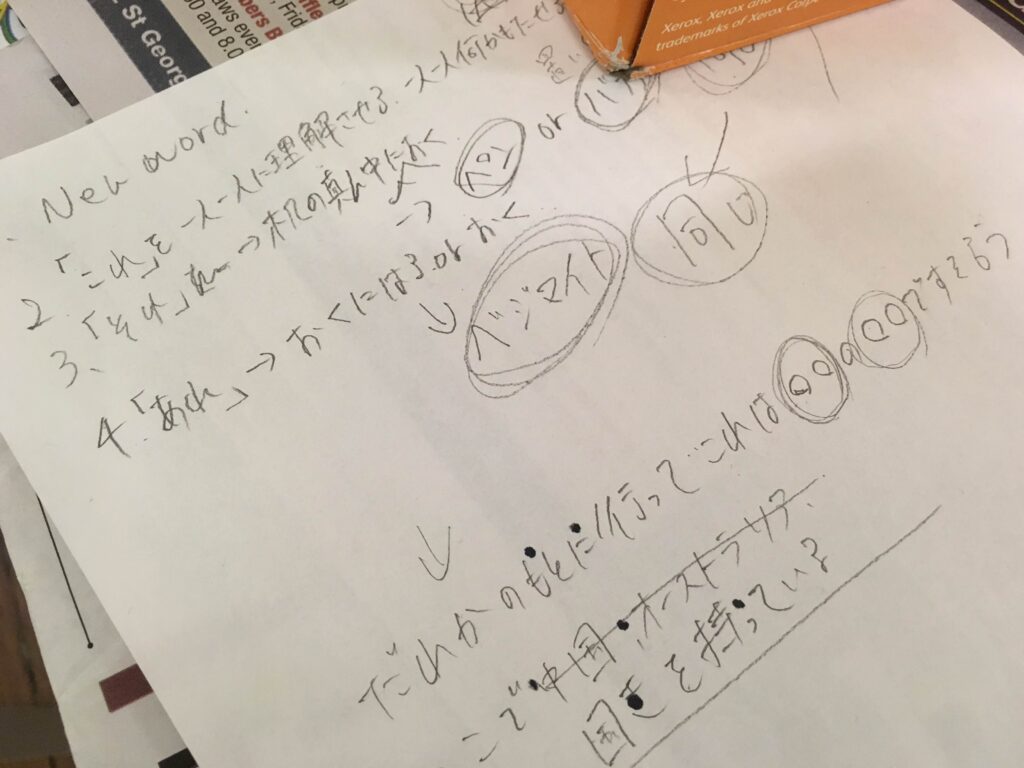 St Georg
and 8.0
Xerox, Xerox and
trademarks of Xerox Corp
New word.
2. 「これ」を 一人一人に理解させる. 一人一人何かもたせる
3、「それ」 → 机の真ん中におく ペン or
4.「あれ」 → おくにはる or おく
ベジマイト
同じ
だれかのもとに行って これは 〇〇の〇〇ですそろう
ここで 中国, オーストラリア.
国 を持っている